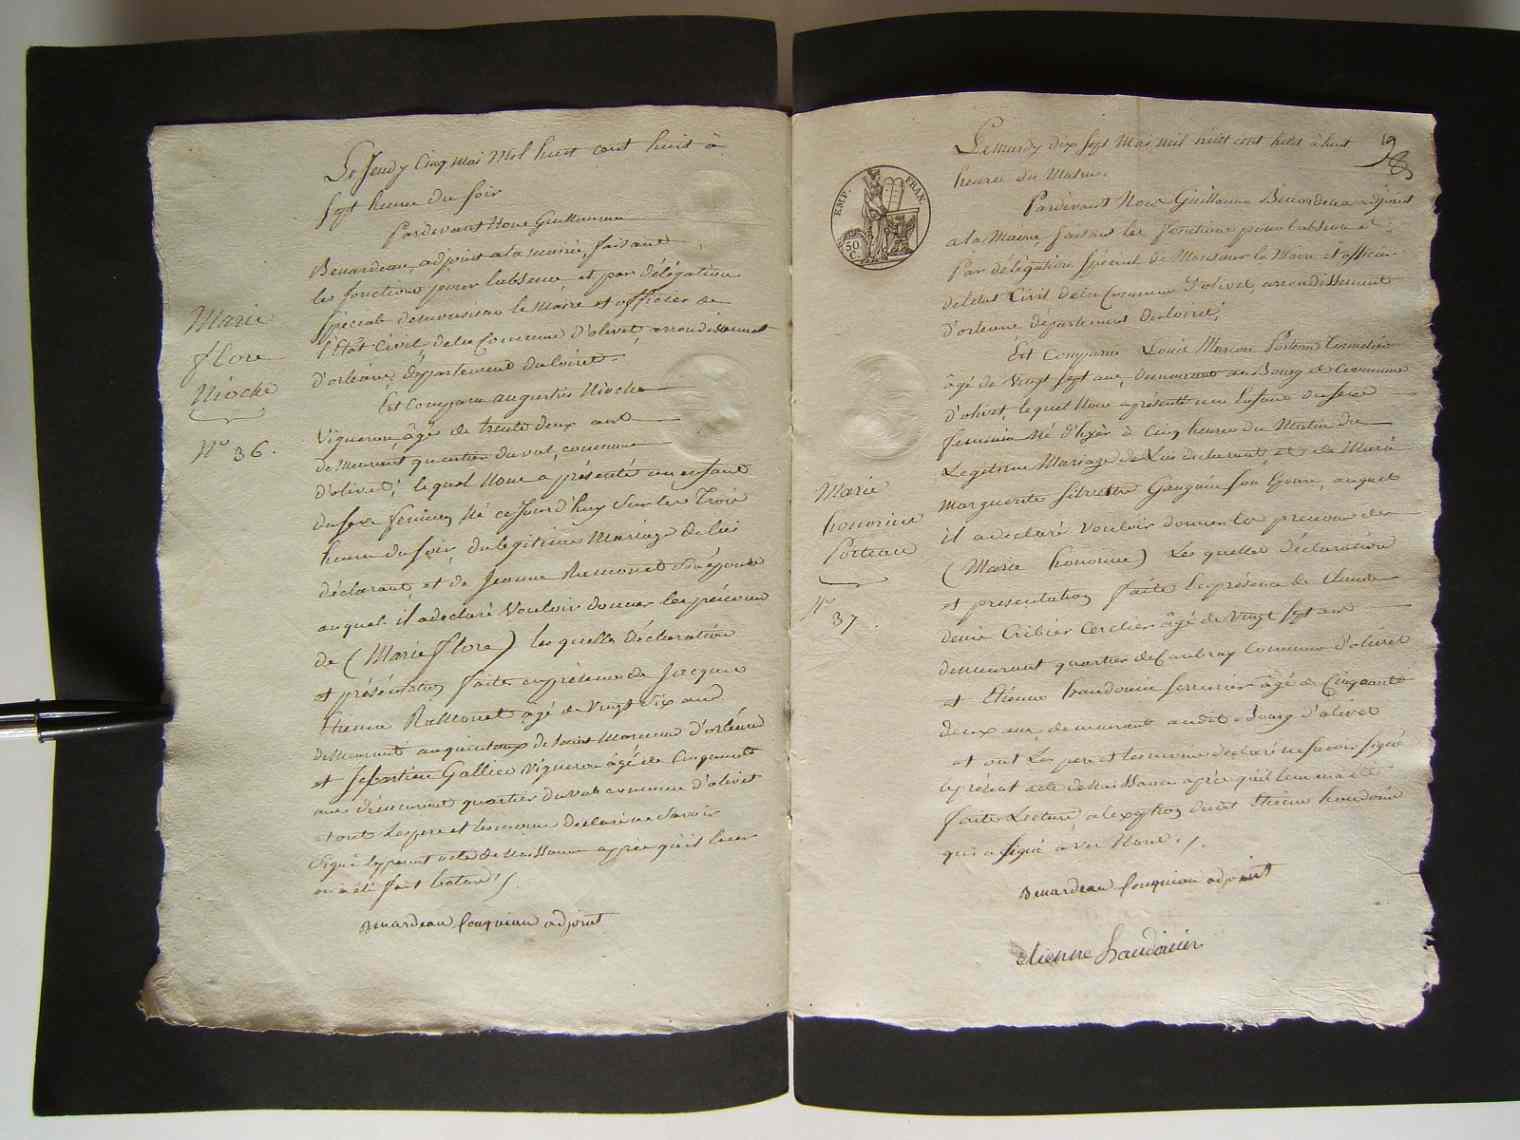 Le Jeudy Cinq mai Mil huit cent huit à
sept heure du soir
Pardevant Nous Guillaume
Benardeau, adjoint a la mairie, faisant
les fonctions pour labsence et par délégation
speciale de monsieur le Maire et officier de
l'Etat Civil de la Commune d'olivet, arrondissement
d'orleans, département du loiret.
Est Comparu augustin Nioche
Vigneron âgé de trente deux ans
demeurant quartier du val, commune
d'olivet, lequel Nous a présenté un enfant
du sexe feminin Né ce jourd'huy sur les Trois
heure du soir, du legitime Mariage de lui
déclarant et de Jeanne Ramonet son épouse
auquel il a declaré Vouloir donner les prénoms
de (Marie flore) les quelles déclaration
et présentation faites en présence de Jacques
Etienne Ramonet âgé de Vingt Six ans
demeurant au quientaux de saint Marceau d'orléans
et Sebastien Gallier Vigneron âgé de Cinquante
ans demeurant quartier du val commune d'olivet
et ont Les pere et temoins déclaré ne Savoir
Signé le present acte de Naissance après qu'il leur
en a été fait lecture
Benardeau Couqueau adjoint
Marie
flore
Nioche
No 36.
19
Le mardy dix sept Mai mil huit cent huit à huit
heures du Matin.
Pardevant Nous Guillaume Benardeau adjoint
a la Mairie, faisant les fonctions pour labsence et
Par délégation Spécial de Monsieur le Maire et officier
de letat Civil de la Commune d'olivet, arrondissement
d'orleans département du loiret,
Est Comparu Louis Marcou Porteau Tonnelier
âgé de Vingt Sept ans, demeurant au Bourg de Commune
d'olivet, lequel Nous a présenté un Enfant du sexe
feminin Né d'hyer à Cinq heures du Matin du
Legitime Mariage de Lui declarant, et de Marie
Marguerite Silvestre Gauguin son Epouse, auquel
il a declaré Vouloir donner les prenoms de
(Marie honorine) Les quelles déclaration
et presentation faite En présence de Claude
denis Cribier Cerclier âgé de Vingt Sept ans
demeurant quartier de Caubray Commune d'olivet
et Etienne haudouin serrurier âgé de Cinquante
deux ans, demeurant audit Bourg d'olivet
et ont Les pere et temoins déclaré ne savoir signé
le présent acte de Naissance après qu'il leur en a été
faite Lecture, a lexeption dudit Etienne haudouin
qui a Signé avec Nous.
Benardeau Couqueau adjoint
etienne haudouin
Marie
honorine
Porteau
No
37.
EMP. FRAN.
50
C.